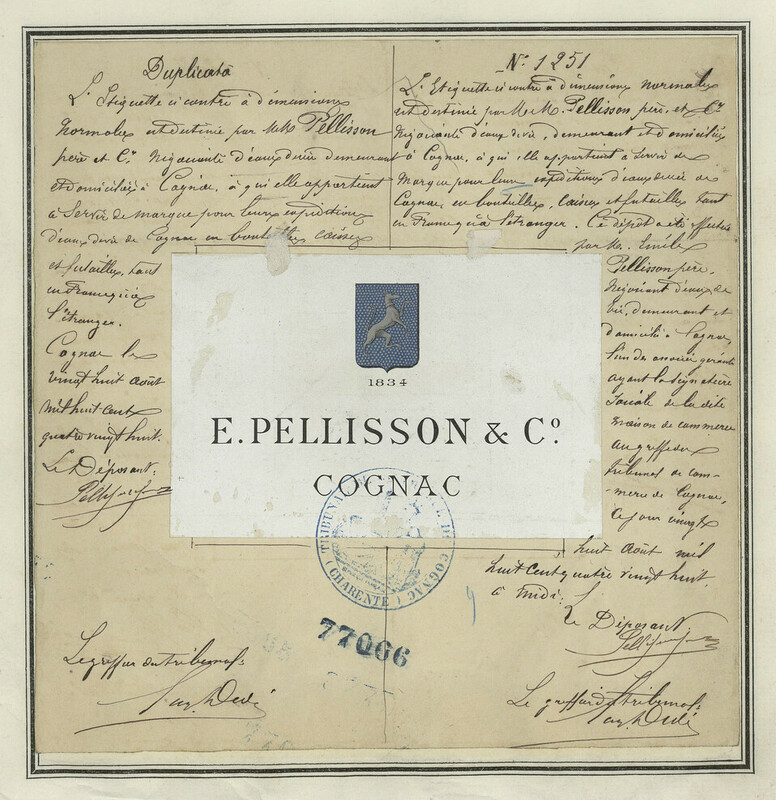 Duplicata
L'Etiquette ci contre à dimensions
Normales est destinée par M.M. Pellisson
père et Cie Négociants d'eaux de vie demeurant
et domiciliés à Cognac, à qui elle appartient
à Servir de marque pour leurs expéditions
d'eaux de vie de Cognac en bouteilles caisses
et futailles, tant
en France qu'à
l'étranger.
Cognac le
vingt huit août
mil huit cent
quatre vingt huit.
Le Déposant.
Le greffier du tribunal
No 1251
L'Etiquette ci contre à dimensions normales
est destinée par M.M. Pellisson père et Cie
Négociants d'eaux de vie, demeurant et domiciliés
à Cognac, à qui elle appartient à Servir de
Marque pour leurs expéditions d'eaux de vie de
Cognac, en bouteilles, caisses et futailles tant
en France qu'à l'étranger. Ce dépôt a été effectué
par Mr. Emile
Pellisson père,
Négociant d'eaux de
vie, demeurant et
domicilié à Cognac,
l'un des associés gérants
ayant la signature
sociale de la dite
maison de commerce
au greffe du
tribunal de com-
merce de Cognac,
ce jour vingt
huit août mil
huit cent quatre vingt huit.
à midi.
Le Déposant
Le greffier du tribunal
1834
E. PELLISSON & Co.
COGNAC
TRIBUNAL DE COGNAC
(CHARENTE)
77066